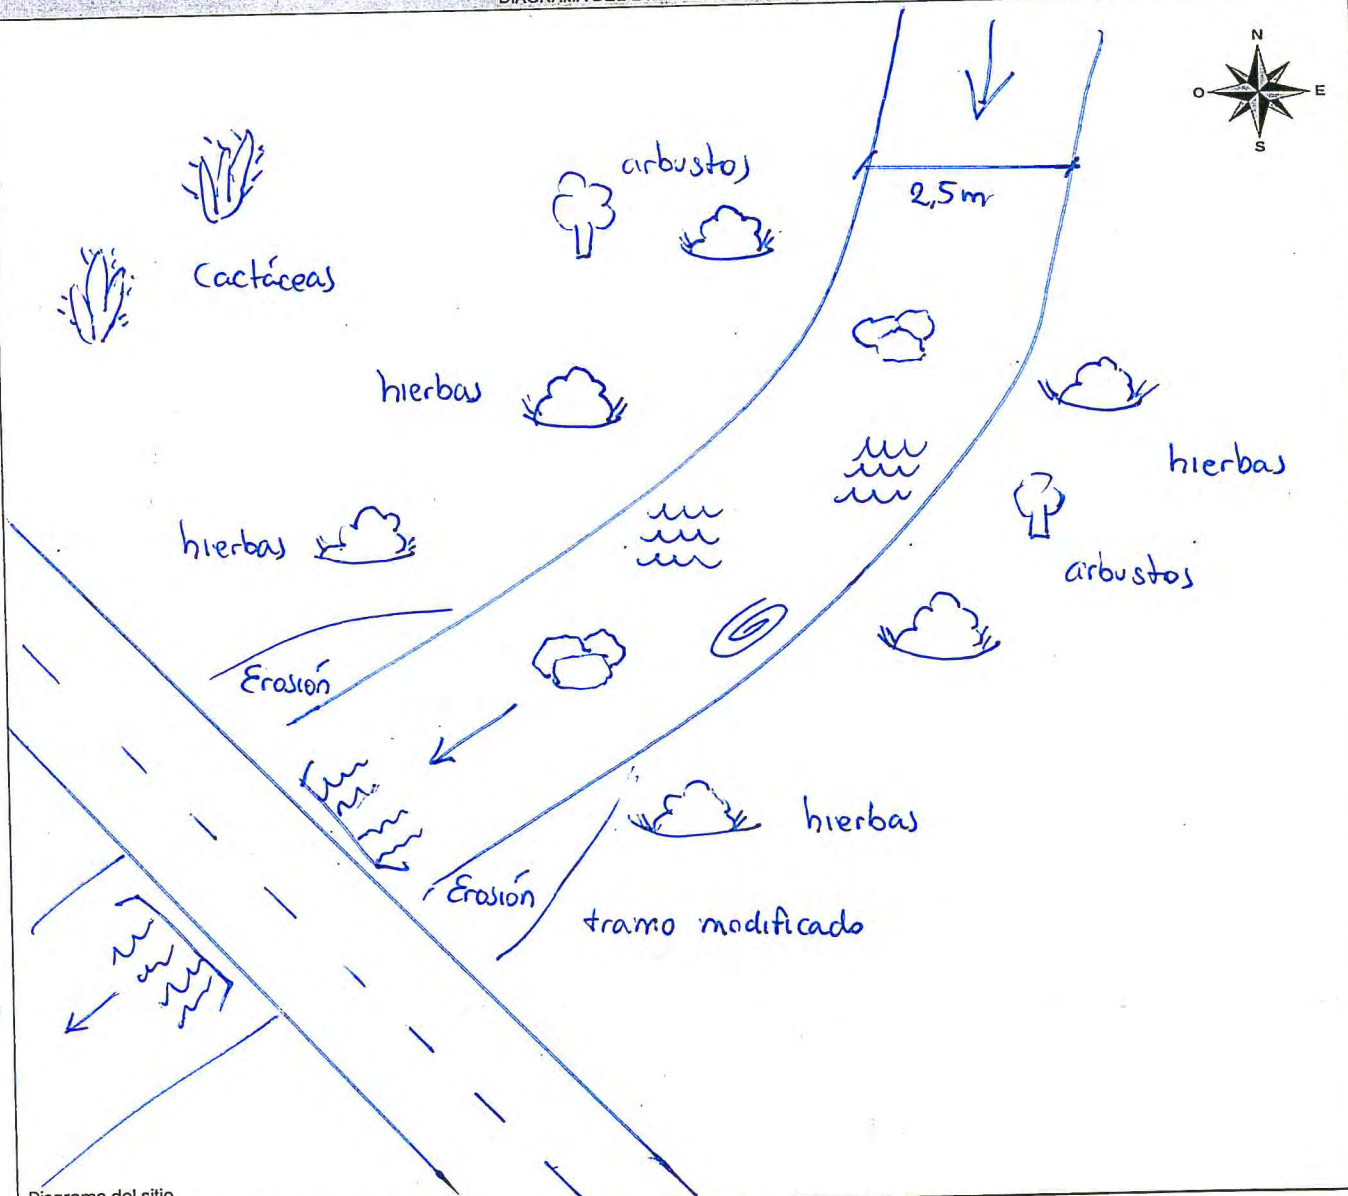 N
O E
S
arbustos
2,5m
Cactáceas
hierbas
hierbas
hierbas
arbustos
Erosión
hierbas
Erosión
tramo modificado
Diagrama del sitio